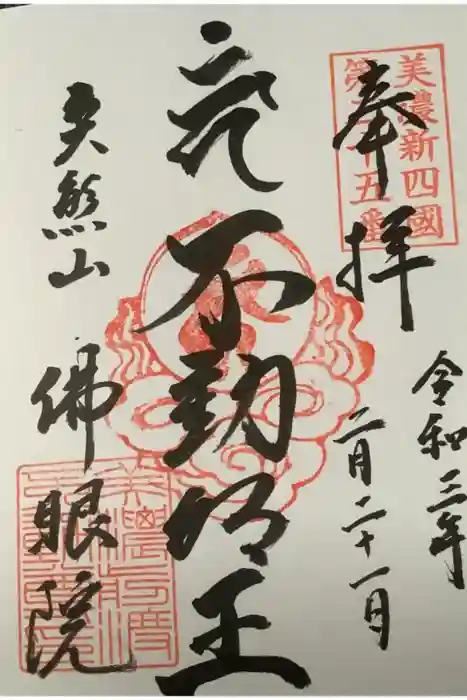 美濃新四國
第十五番
奉拝
令和三年
二月二十一日
不動明王
熊山
佛眼院